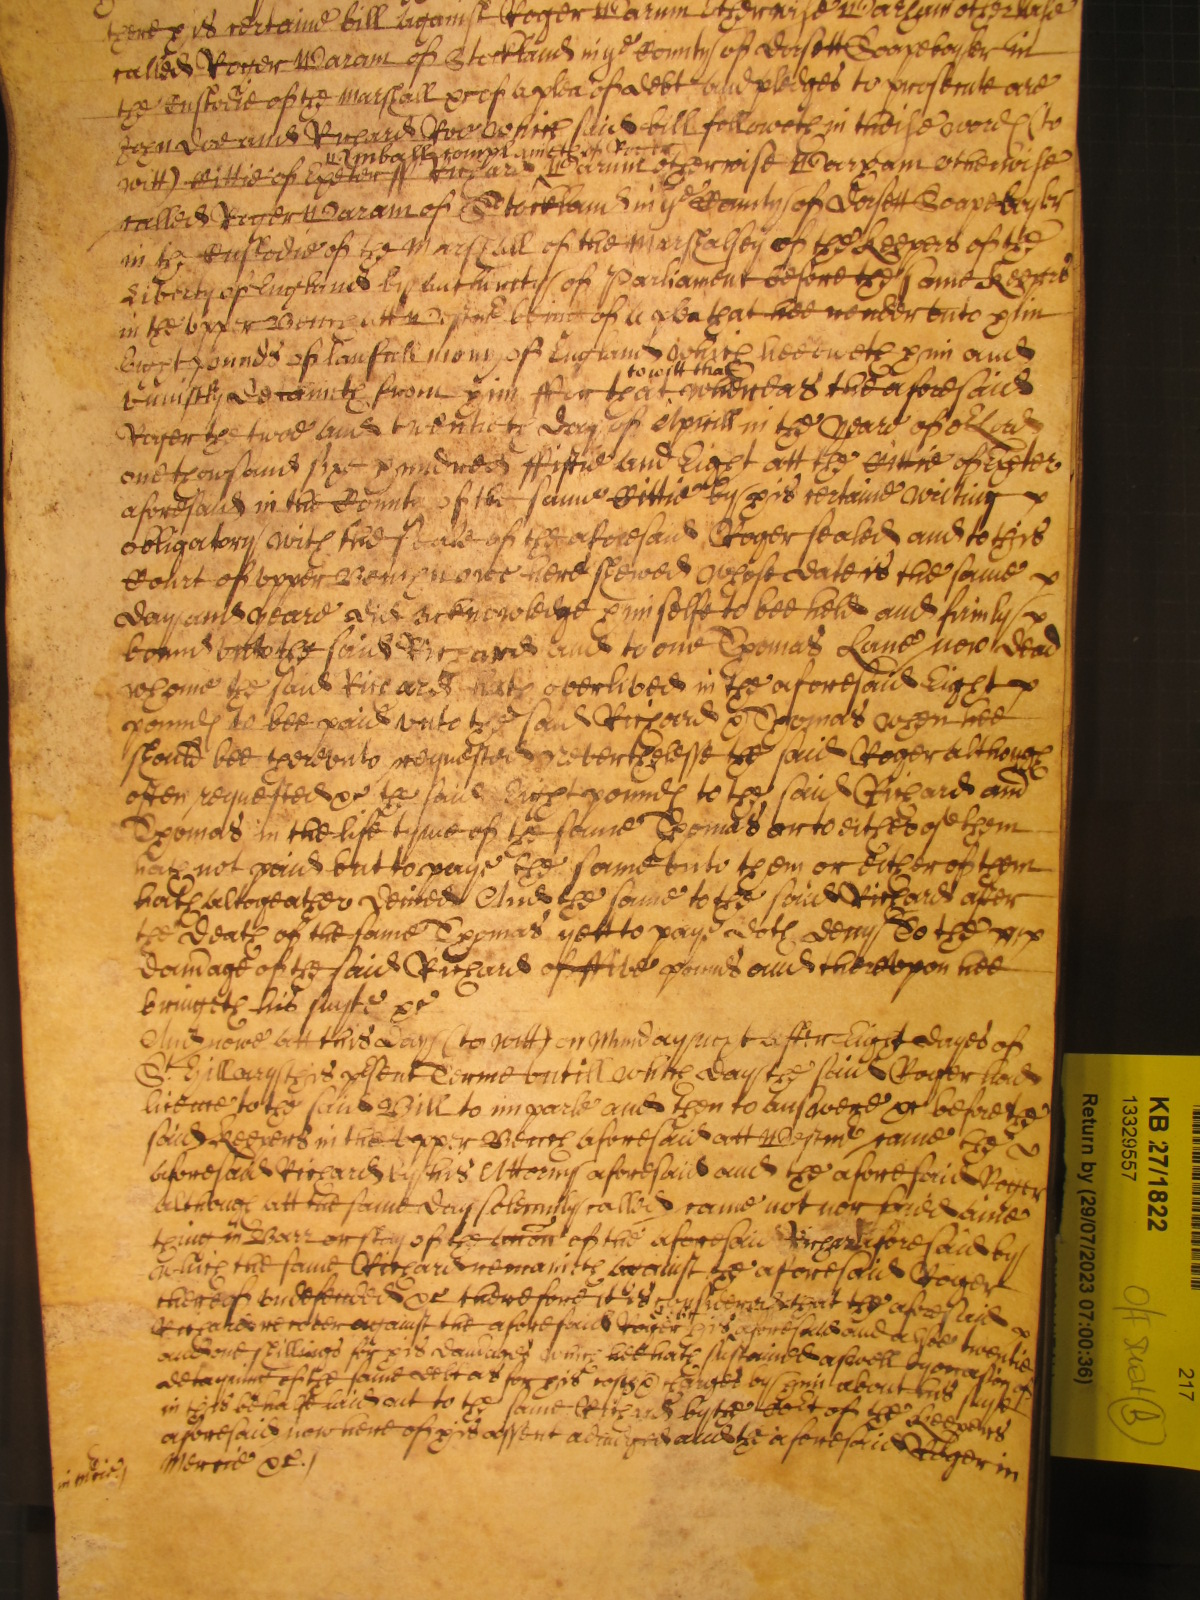 there his certaine bill against Roger Waram otherwise Warham otherwise
called Roger Waram of Stockland in ye County of Dorsett Soapeboyler in
the Custodie of the Marshall &c of a plea of debt and pledges to prosecute are
John Doe and Richard Roe which said bill followeth in theise words (to
Kimball complaineth of Roger
witt) Cittie of Exeter ss Richard Waram otherwise Warham otherwise
called Roger Waram of Stockland in ye County of Dorsett Soapeboyler
in the Custodie of the Marshall of the Marshalsey of the Keepers of the
Liberty of England by authority of Parliament before the same Keepers
in the upper Bench att Westmr being of a plea that hee render unto him
Eight pounds of lawfull mony of England which hee oweth him and
to witt that
Uniustly detaineth from him ffor that whereas the aforesaid
Roger the twoe and twentieth day of Aprill in the yeare of or Lord
one thowsand sixe hundred ffiftie and Eight att the Cittie of Exeter
aforesaid in the County of the same Cittie by his certaine writing
obligatory with the seale of the aforesaid Roger sealed and to this
Court of upper Bench nowe here shewed whose date is the same
day and yeare did acknowledge himselfe to bee held and firmly
bound unto the said Richard and to one Thomas Lane now dead
whome the said Richard hath overlived in the aforesaid Eight
pounds to bee paid unto the said Richard & Thomas when hee
should bee thereunto requested Neverthelesse the said Roger although
often requested &c the said Eight pounds to the said Richard and
Thomas in the life tyme of the same Thomas or to either of them
hath not paid but to paye the same unto them or Either of them
hath altogeather denied And the same to the said Richard after
the death of the same Thomas yett to paye doth deny To the
damage of the said Richard of ffive pounds and thereupon hee
bringeth his suyte &c
And nowe att this day (to witt) on Munday next after Eight dayes of
St Hillary this psent Terme untill which day the said Roger had
licence to the said Bill to imparle and then to answere &c before the
said Keepers in the upper Bench aforesaid att Westmr came the
aforesaid Richard by his Attorny aforesaid and the aforesaid Roger
although att the same day solemnly called came not nor said anie
thing in Barr or stay of the accon of the aforesaid Richard aforesaid by
which the same Richard remaineth against the aforesaid Roger
thereof undefended &c therefore it is considered that the aforesaid
Richard recover against the aforesaid Roger his aforesaid and alsoe twentie
and one shillings for his damages which hee hath sustained aswell by occasion of
detayning of the same debt as for his costs & charges by him about his suyte
in this behalfe laid out to the same Richard by the Court of the Keepers
aforesaid now here of his assent adiudged and the aforesaid Roger in
Mercie &c./
in mcie
KB 27/1822
13329557
Return by (29/07/2023 07:00:36)
217